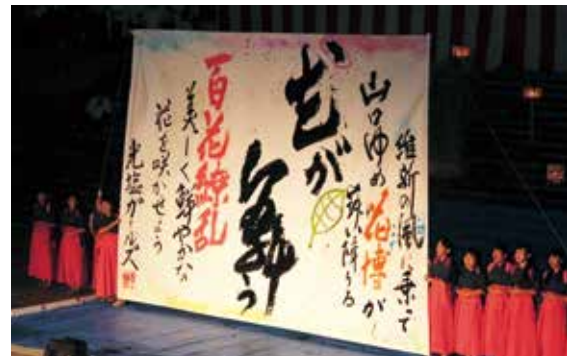 維新の風に乗って
山口ゆめ花博が
舞い降りる
花が
舞う
百花繚乱
美しく鮮やかな
花を咲かせよう
光塩ガールズ